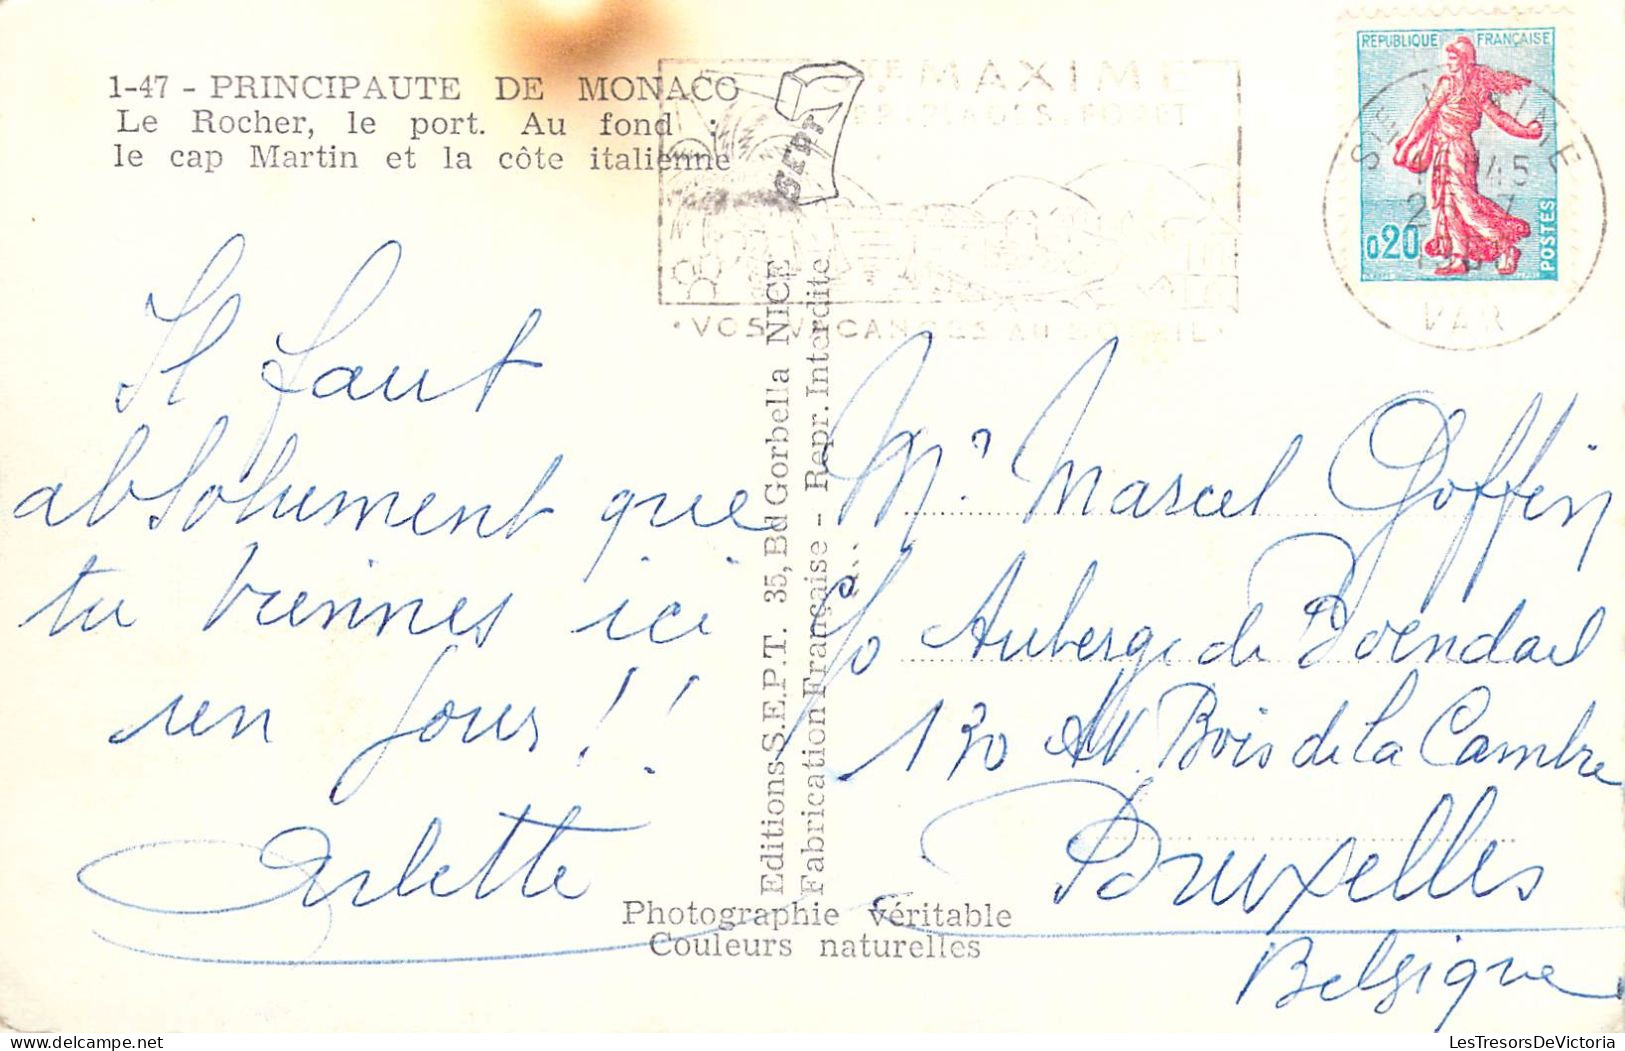 1-47 - PRINCIPAUTE DE MONACO
Le Rocher, le port. Au fond :
le cap Martin et la côte italienne
Il faut
absolument que
tu viennes ici
un jour !!
Arlette
Editions S.E.P.T. 35, Bd Gorbella NICE
Fabrication Française - Repr. Interdite
Photographie véritable
Couleurs naturelles
STE MAXIME
PLAGES FORET
VOS VACANCES AU SOLEIL
REPUBLIQUE FRANÇAISE
0,20
POSTES
STE MAXIME
VAR
Mr Marcel Goffin
c/o Auberge de Boendael
130 AV. Bois de la Cambre
Bruxelles
Belgique
LesTresorsDeVictoria.com